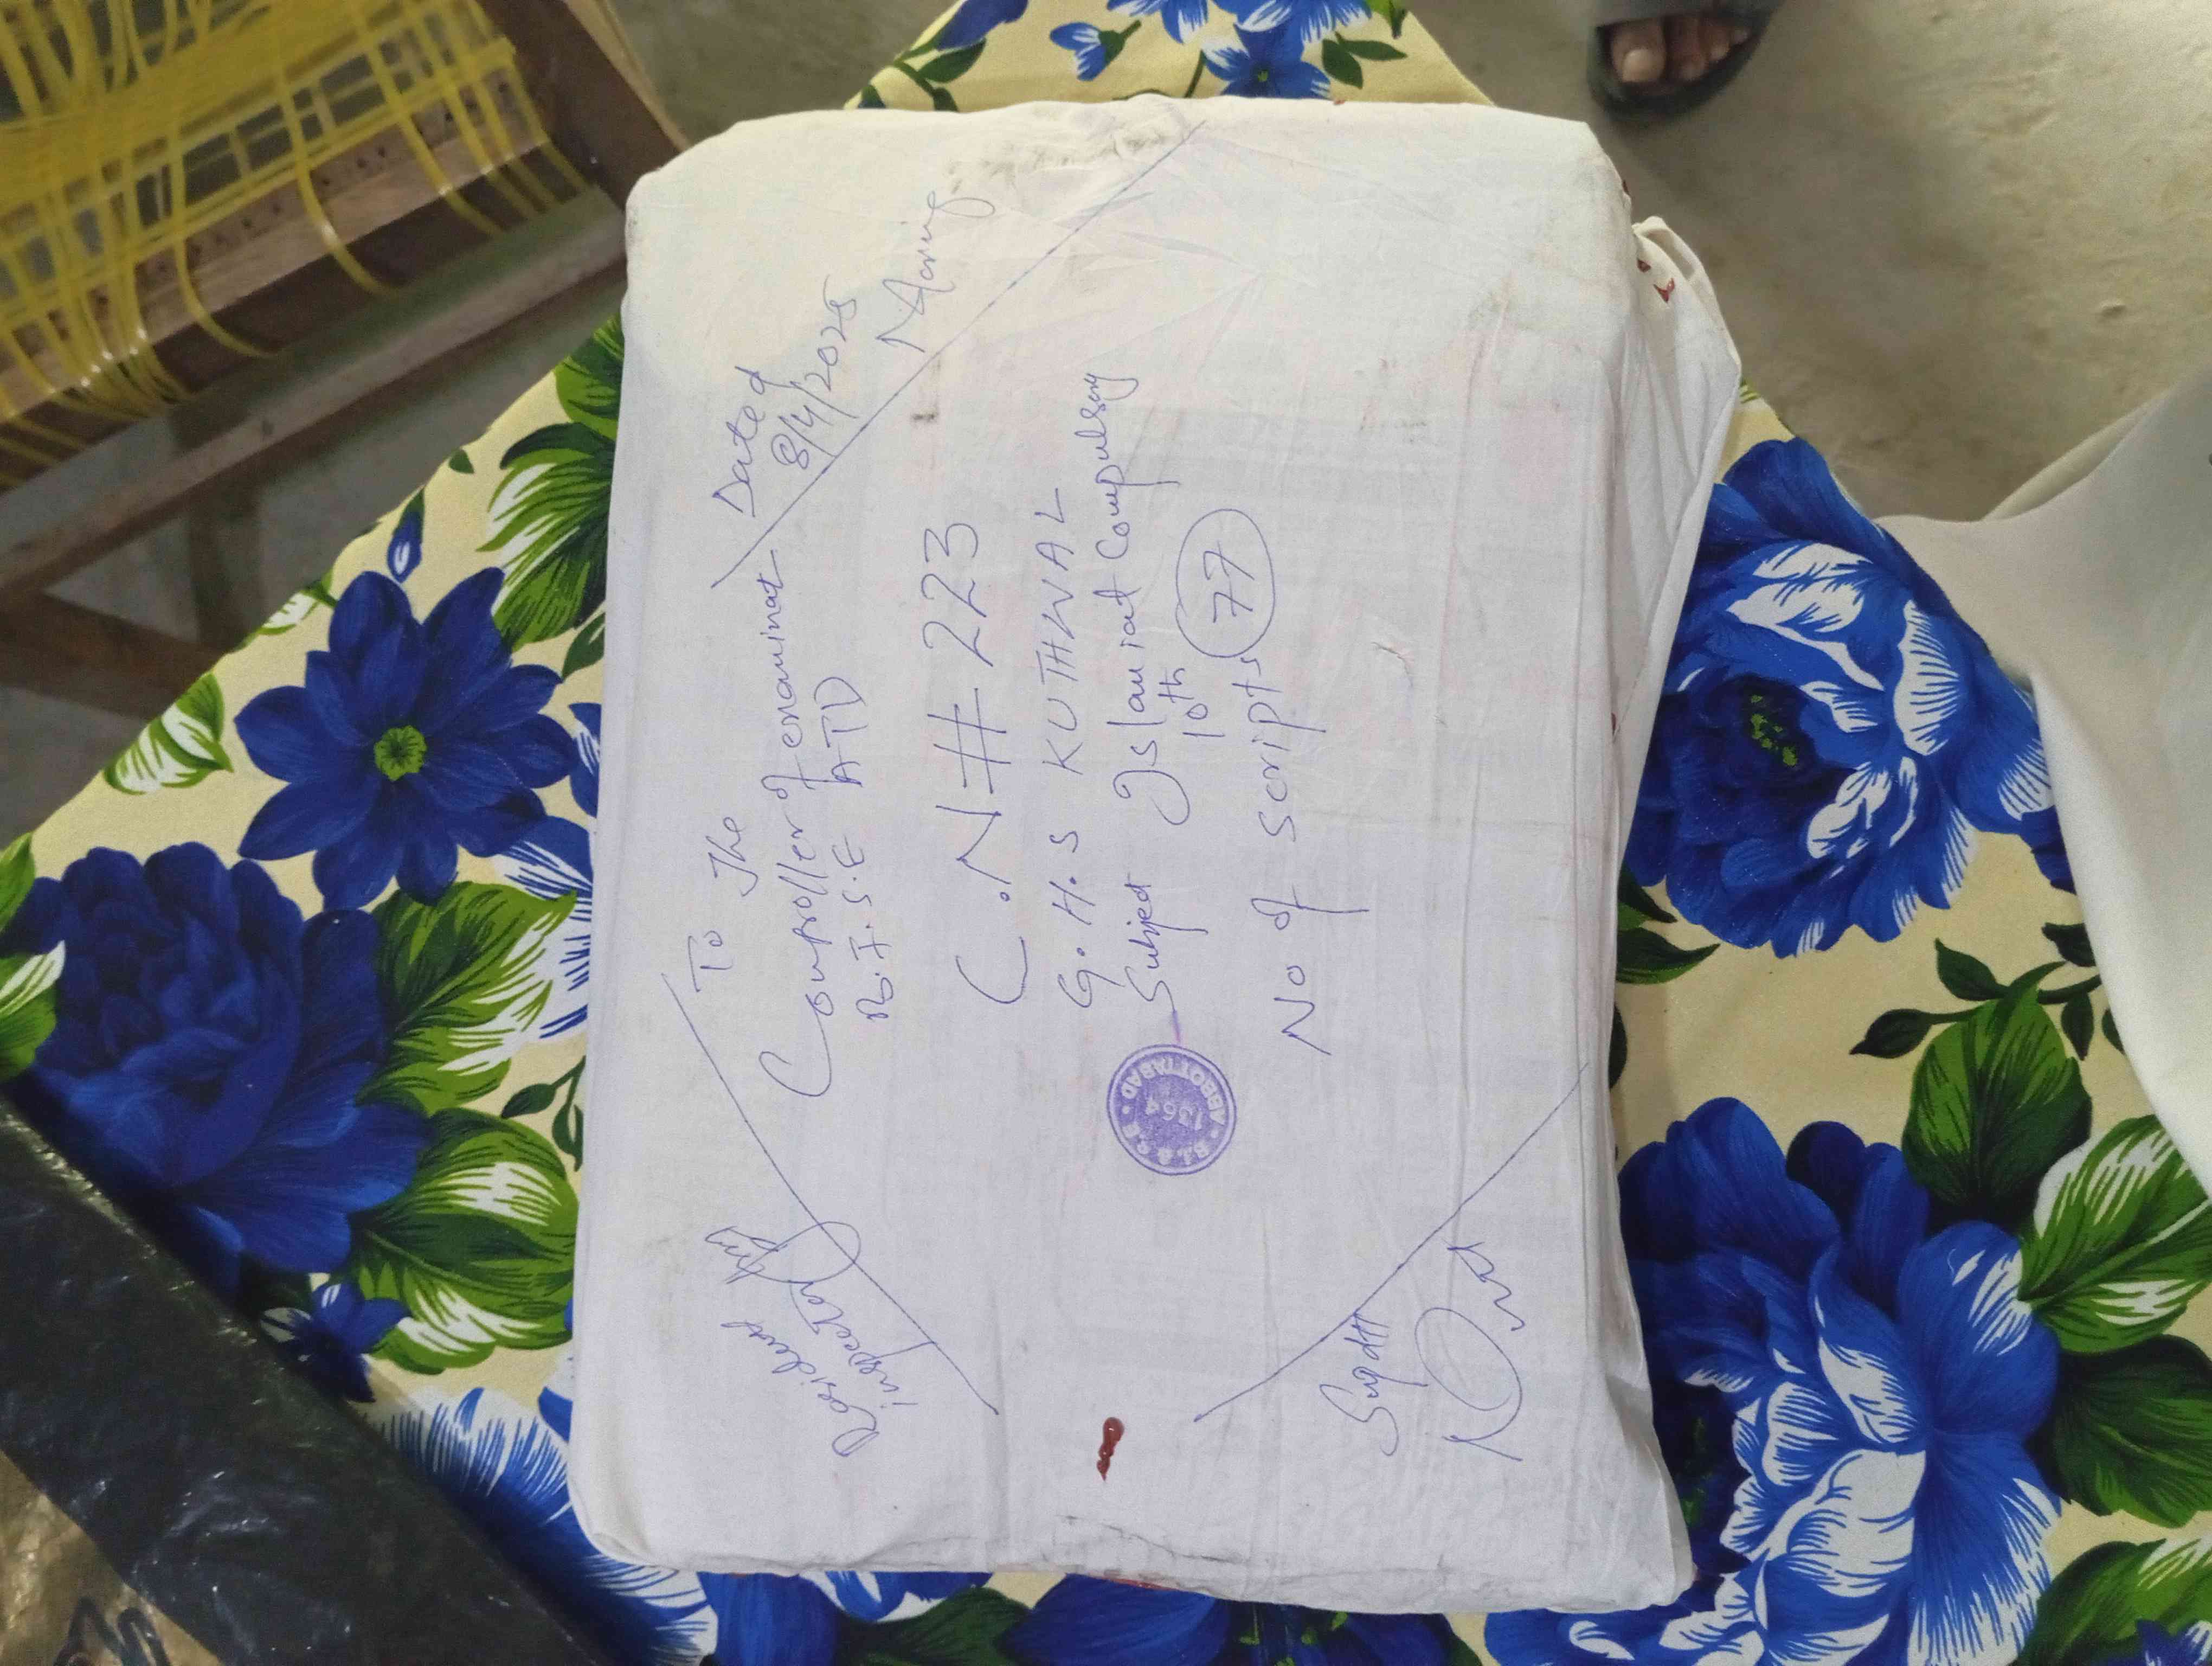 To The
Controller of enaminat
B.I.S.E ATD
Dated
8/4/2025
Morning
C.N # 223
G.H.S KUTHWAL
Subject Islamiat Compulsory
10th
No of scripts 77
Resident
inspector
Supdtt
B.I.S.E
1364
ABBOTTABAD